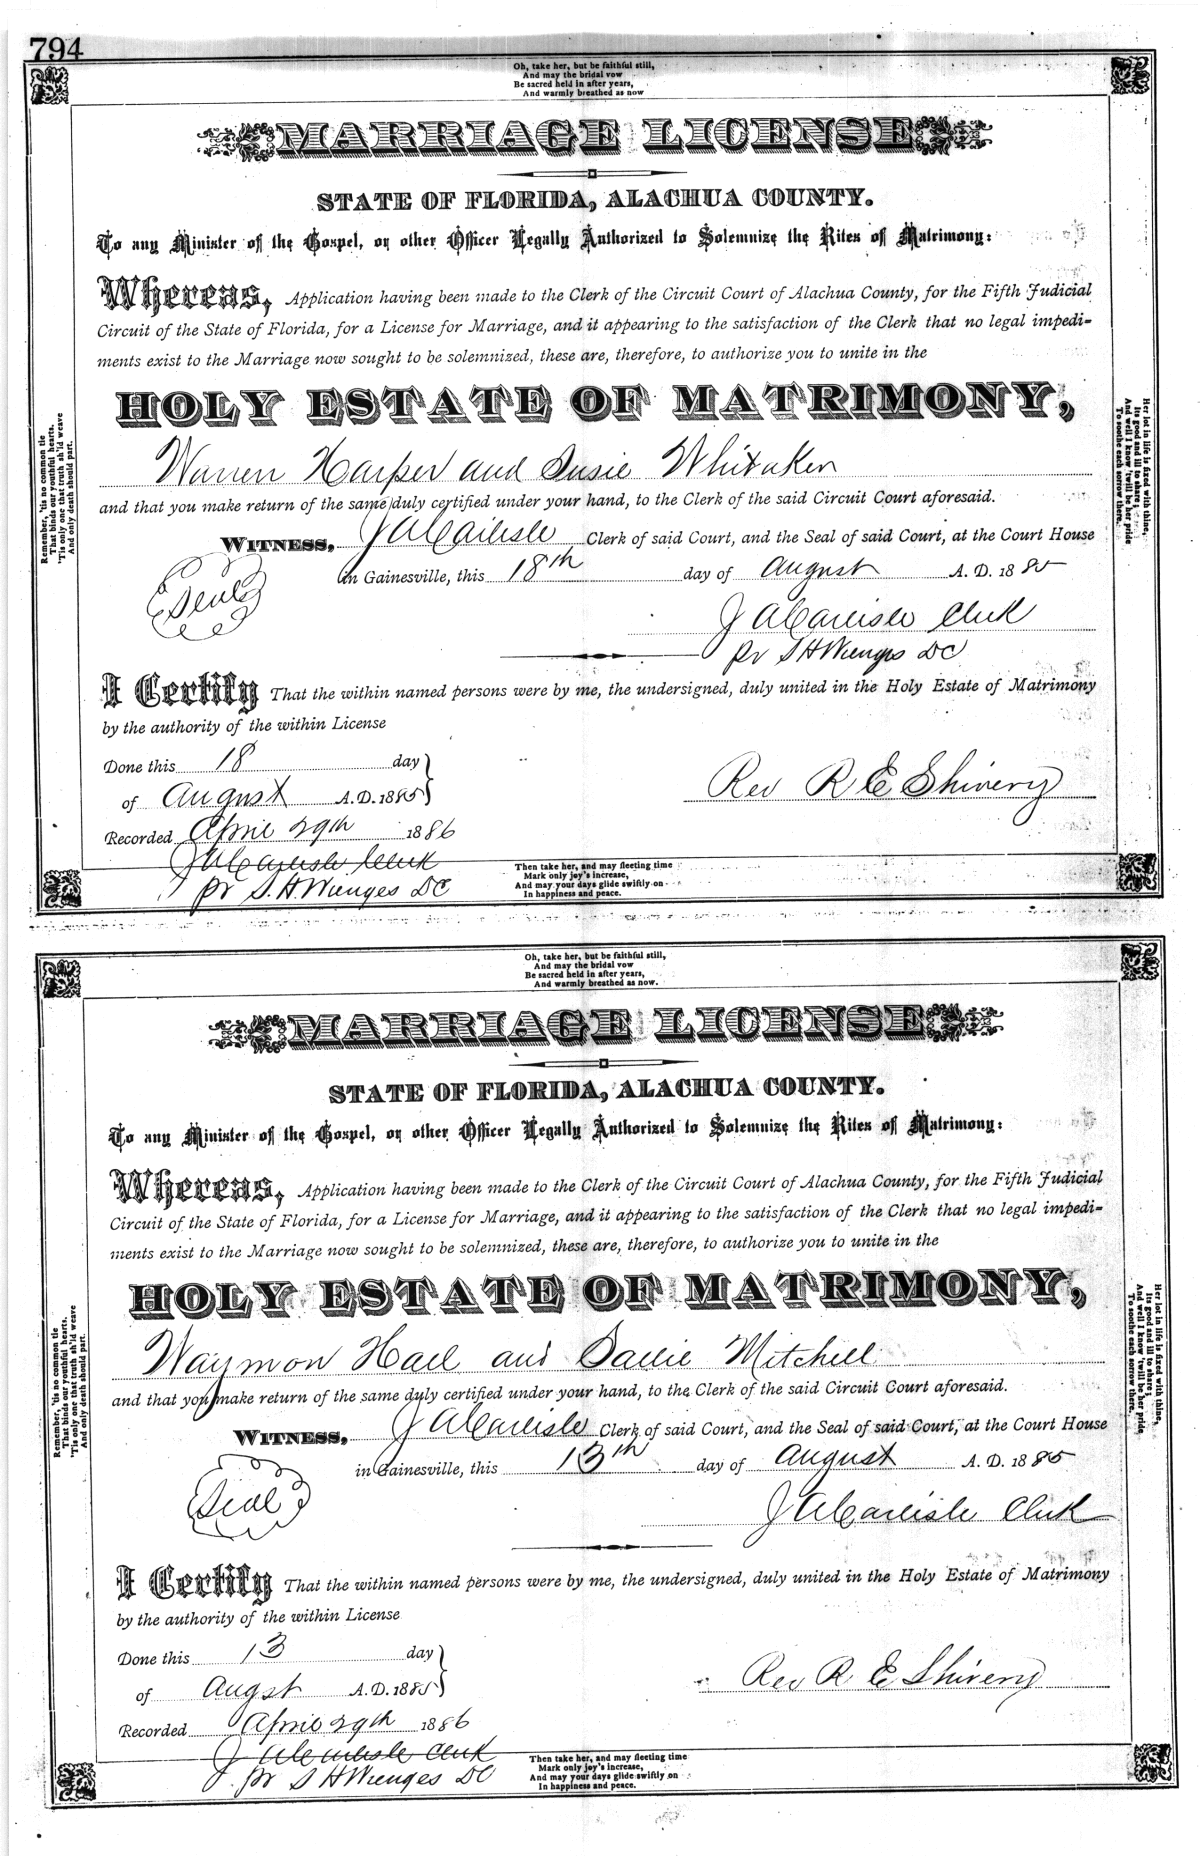 794
Oh, take her, but be faithful still,
And may the bridal vow
Be sacred held in after years,
And warmly breathed as now
MARRIAGE LICENSE
STATE OF FLORIDA, ALACHUA COUNTY.
To any Minister of the Gospel, or other Officer Legally Authorized to Solemnize the Rites of Matrimony:
Whereas, Application having been made to the Clerk of the Circuit Court of Alachua County, for the Fifth Judicial
Circuit of the State of Florida, for a License for Marriage, and it appearing to the satisfaction of the Clerk that no legal impedi-
ments exist to the Marriage now sought to be solemnized, these are, therefore, to authorize you to unite in the
HOLY ESTATE OF MATRIMONY,
Warren Harper and Susie Whitaker
and that you make return of the same duly certified under your hand, to the Clerk of the said Circuit Court aforesaid.
WITNESS, J A Carlisle Clerk of said Court, and the Seal of said Court, at the Court House
in Gainesville, this 18th day of August A. D. 1885
Seal
J A Carlisle Clerk
pr S H Wienges DC
I Certify That the within named persons were by me, the undersigned, duly united in the Holy Estate of Matrimony
by the authority of the within License
Done this 18 day
of August A.D. 1885
Rev R E Shivery
Recorded April 29th 1886
J A Carlisle Clerk
pr S. H. Wienges DC
Remember, 'tis no common tie
That binds our youthful hearts.
'Tis only one that truth sh'ld weave
And only death should part.
Her lot in life is fixed with thine,
Its good and ill to share;
And well I know 'twill be her pride
To soothe each sorrow there.
Then take her, and may fleeting time
Mark only joy's increase,
And may your days glide swiftly on
In happiness and peace.
Oh, take her, but be faithful still,
And may the bridal vow
Be sacred held in after years,
And warmly breathed as now.
MARRIAGE LICENSE
STATE OF FLORIDA, ALACHUA COUNTY.
To any Minister of the Gospel, or other Officer Legally Authorized to Solemnize the Rites of Matrimony:
Whereas, Application having been made to the Clerk of the Circuit Court of Alachua County, for the Fifth Judicial
Circuit of the State of Florida, for a License for Marriage, and it appearing to the satisfaction of the Clerk that no legal impedi-
ments exist to the Marriage now sought to be solemnized, these are, therefore, to authorize you to unite in the
HOLY ESTATE OF MATRIMONY,
Waymon Hall and Sallie Mitchell
and that you make return of the same duly certified under your hand, to the Clerk of the said Circuit Court aforesaid.
WITNESS, J A Carlisle Clerk of said Court, and the Seal of said Court, at the Court House
in Gainesville, this 13th day of August A. D. 1885
Seal
J A Carlisle Clerk
I Certify That the within named persons were by me, the undersigned, duly united in the Holy Estate of Matrimony
by the authority of the within License
Done this 13 day
of Augst A.D. 1885
Rev R E Shivery
Recorded April 29th 1886
J A Carlisle Clerk
pr S H Wienges DC
Remember, 'tis no common tie
That binds our youthful hearts.
'Tis only one that truth sh'ld weave
And only death should part.
Her lot in life is fixed with thine,
Its good and ill to share;
And well I know 'twill be her pride
To soothe each sorrow there.
Then take her, and may fleeting time
Mark only joy's increase,
And may your days glide swiftly on
In happiness and peace.